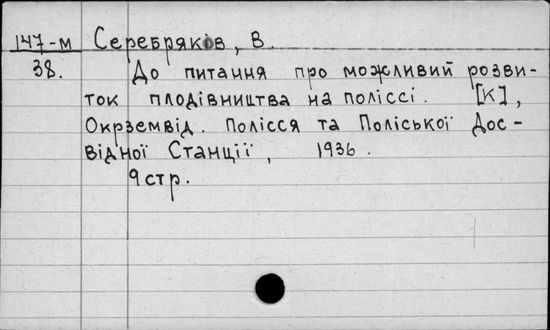 147-м Серебряков, В.
38. До питання про можливий розви-
ток плодівництва на поліссі. [К],
Окрземвід. Полісся та Поліської Дос-
відної Станції, 1936.
9 стр.